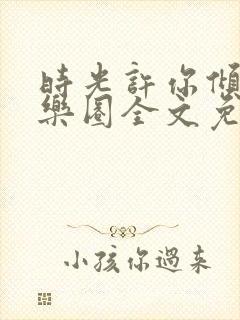 時光許你傾
樂園全文免
小孩你過来